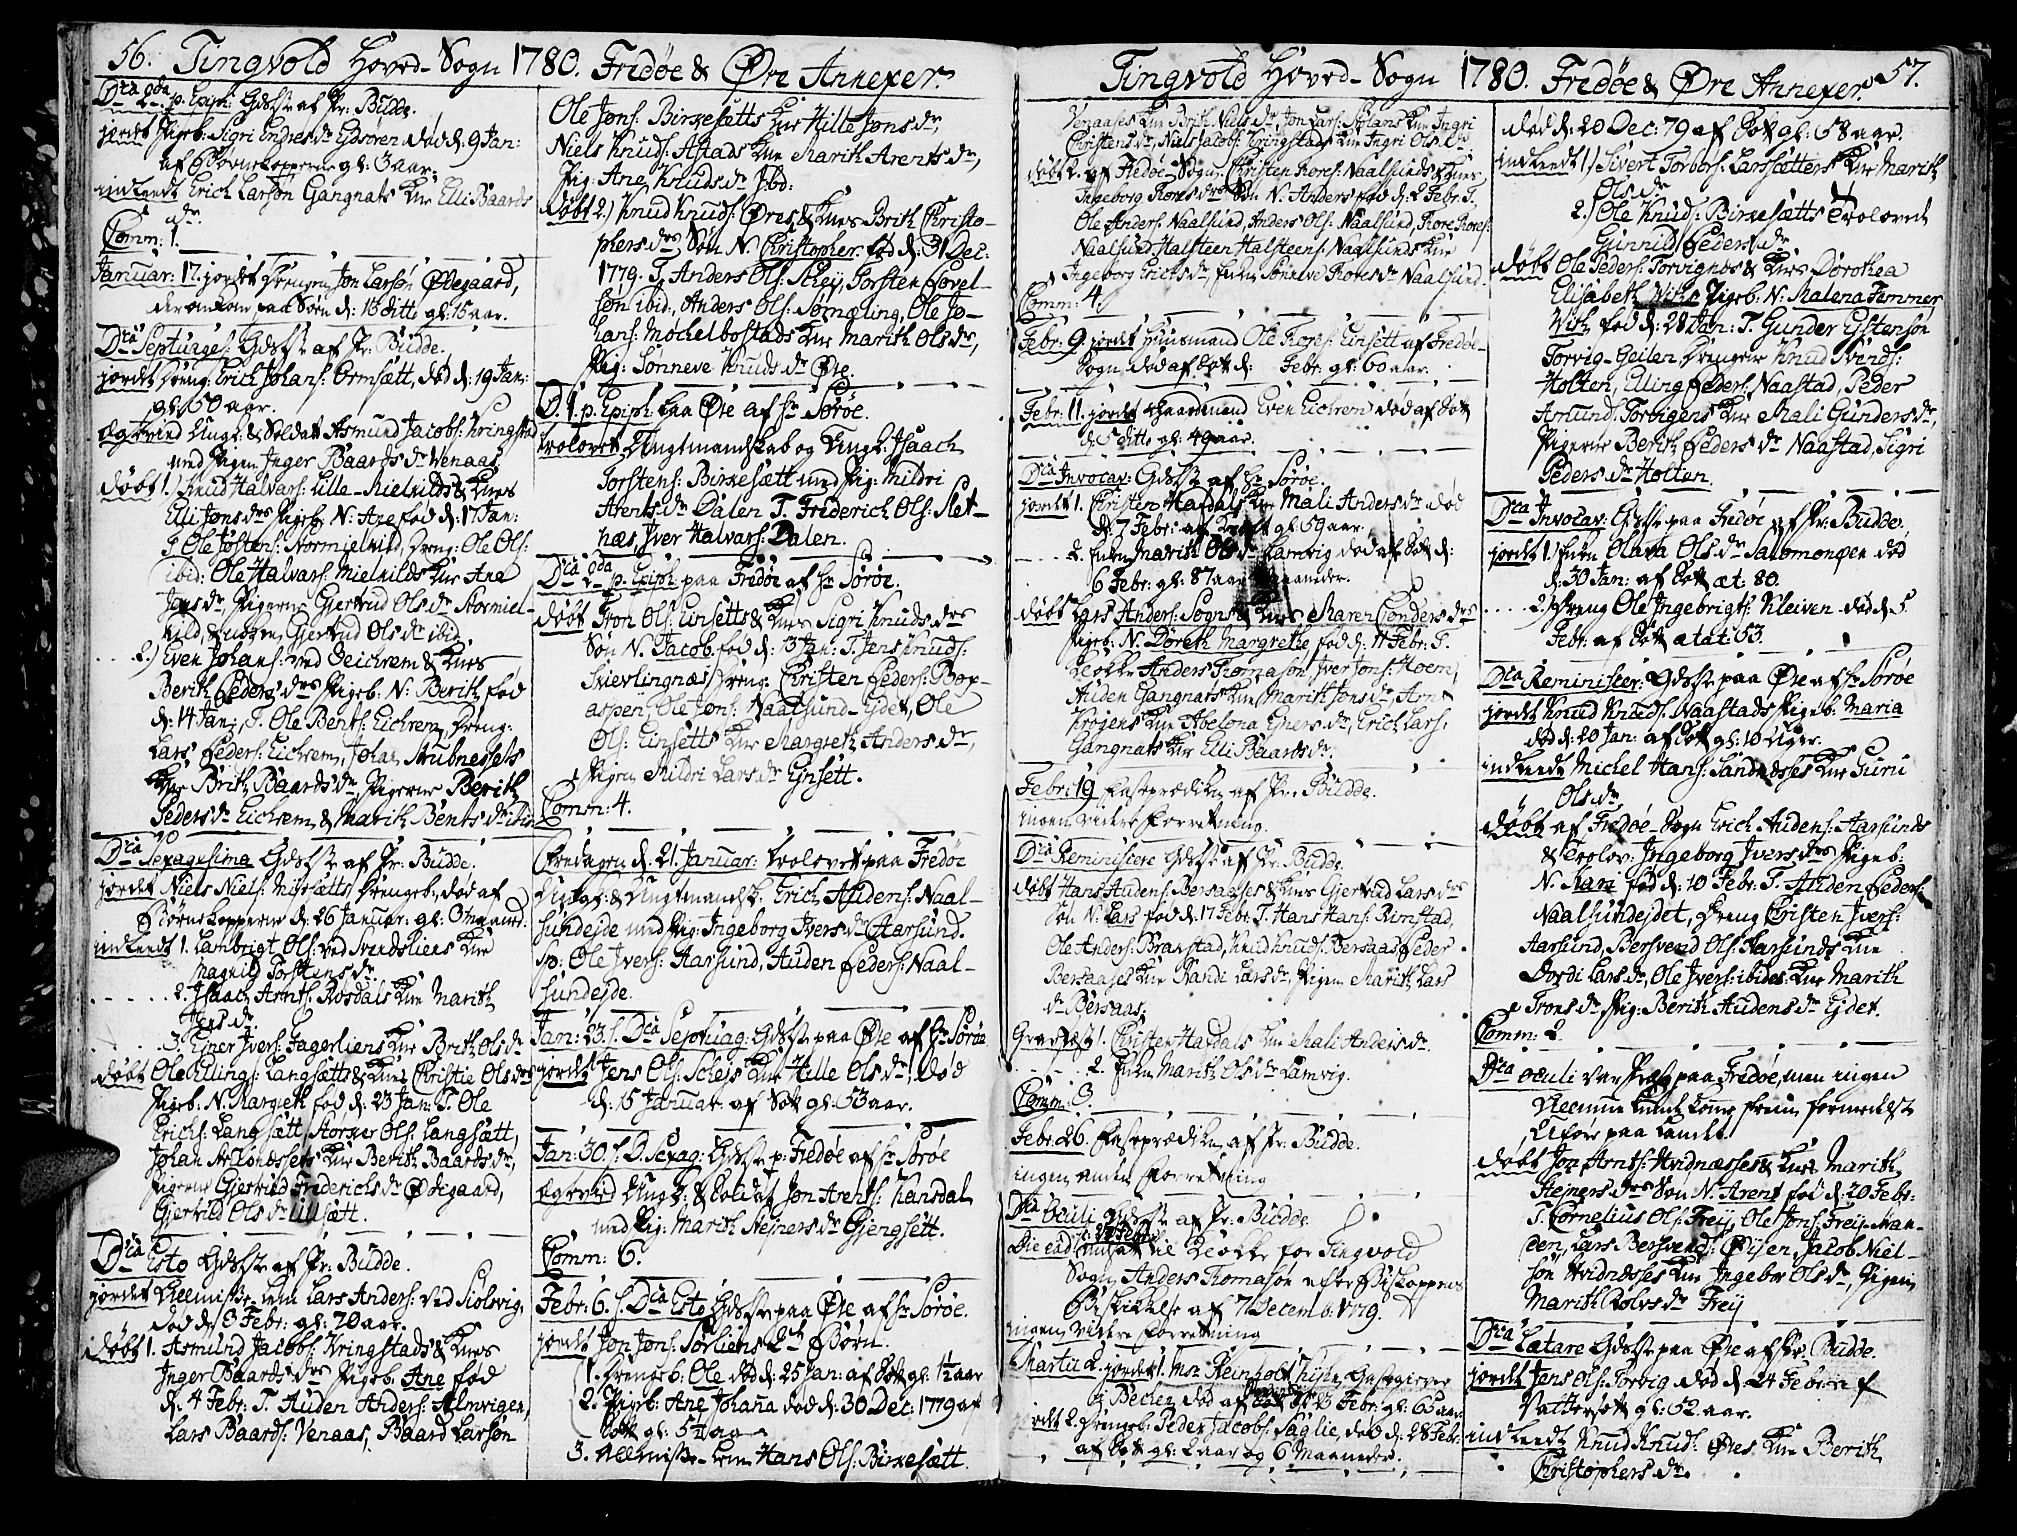 56. Tingvold Hoved-Sogn 1780. Fredøe & Øre Annexer.
Dca 2da p. Epiph: Gdstt af Hr: Budde.
jordet Pigeb: Sigri Endres dr Edsoren død d. 9 Jan:
af Børnekopperne gl: 3 aar.
indleedt Erich Larsøn Gangnats Kne Elli Baards
dr
Comm: 1.
Januar: 17. jordet Drengen Jon Larsøn Ødegaard,
der ankom paa Søen d: 13 ditto gl: 15 aar.
Dca Septuages: Gdstt af Hr: Budde.
jordet Dreng: Erich Johans: Ormsætt, død d: 19 Jan:
gl: 50 aar.
Ægtevied Ungk: & Soldat Asmund Jacobs: Kringstad
med Pigen Inger Baards dr Venaas.
døbt 1.) Knud Halvars: Lille-Mielvilds & Knes
Elli Jons drs Pigeb: N: Ane fød d: 17 Jan:
T. Ole Jostens: Stormielvild, Dreng: Ole Ols:
ibid: Ole Halvars: Mielvilds Kne Ane
Jons dr, Pigerne Gjertrud Ols dr Stormiel-
vild, & Gjertrud Ols dr ibid.
2.) Even Johans: ved Eichrem & Knes
Berith Peders drs Pigeb: N: Berith fød
d: 14 Jan: T. Ole Bents: Eichrem, Dreng:
Lars Peders: Eichrem, Johan Stubnessets
Kne Brith Baards dr Pigerne Berith
Peders dr Eichrem, & Marith Bents dr ibid
Dca Sexagesima Gdstt af Hr: Budde.
jordet Niels Niels: Drengeb: død af
Børnekopperne d: 26 Januar: gl: 8 maaned.
indleedt 1. Lanbrigt Ols: ved Svendsliens Kne
Magnild Torstens dr
2. Isaach Arnts: Rosdals Kne Marith
Jens dr.
3. Ejner Ivers: Fagerliens Kne Brith Ols dr
døbt Ole Ellings: Langsætts & Knes Christie Ols drs
Pigeb: N. Margreth fød d: 23 Jan: T. Ole
Erichs: Langsætt, Storker Ols: Langsætt,
Johan Kne Berith Baards dr,
Pigerne Gjertrud Friderichs dr Ødegaard,
Gjertrud Ols dr Ulsætt.
Dca Esto Gdstt af Hr: Budde.
jordet Allmisse-Lem Lars Anders: ved Siolsvig,
død d: 3 Febr: gl: 70 aar.
døbt 1. Asmund Jacobs: Kringstads & Knes
Inger Baards drs Pigeb: Ane fød
d: 4 Febr: T. Auden Anders: Almvigen,
Lars Baards: Venaas, Baard Larsøn
Ole Jons: Birkesætts Kne Hilte Jons dr,
Niels Knuds: Astads Kne Marith Arents dr,
Pig: Ane Knuds dr ibd:
døbt 2.) Knud Knuds: Øres & Knes Brith Christo-
phers drs Søn N. Christopher fød d: 31 Dec:
1779. T. Anders Ols: Skey, Torsten
søn ibid:, Anders Ols: Sømæling, Ole Jo-
hans: Mochelbostads Kne Marith Ols dr,
Pig: Sønneve Knuds dr Øre.
D. 1. p. Epiph: paa Øre af Hr Sørøe.
troloved Ungtmandskab og Ungk: Isaach
Torstens: Birkesætt med Pig: Mildri
Arents dr Dalen T. Friderich Ols: Slet-
næs, Iver Halvars: Dalen.
Dca 2da p. Epiph: paa Fredøe af Hr Sørøe.
døbt Tron Ols: Einsetts & Knes Sigri Knuds drs
Søn N. Jacob fød d: 13 Jan: T. Jens Knuds:
Skierlingnæs, Dreng: Christen Peders: Bop-
aspen, Ole Jons: Naalsund-Ejdet, Ole
Ols: Einsetts Kne Margreth Anders dr,
Pigen Mildri Lars dr Ejnsett.
Comm: 4.
Fredagen d. 21 Januar: troloved paa Fredøe
Ungk: & Ungtmandsk. Erich Audens: Naal-
sundejde med Pig: Ingeborg Ivers dr Aarsund.
Sp: Ole Ivers: Aarsund, Auden Peders: Naal-
sundejde.
Jan: 23. s. Dca Septuag: Gdstt paa Øre af Hr Sørøe
jordet Jens Ols: Schejs Kne Hille Ols dr, død
d. 15 Januar: af Sott gl: 53 aar.
Jan: 30. s. D. Sexag: Gdstt p: Fredøe af Hr Sørøe
Ægtevied Ungk: & Soldat Jon Arents: Hansdal
med Pig: Marith Stejners dr Gjengsett.
Comm: 6.
Febr: 6. s. Dca Esto Gdstt paa Øre af Hr Sørøe.
jordet Jon Jons: Sørliens 2de Børn.
1. Drengeb: Ole død d: 25 Jan: af Sott gl: 1½ aar
2. Pigeb: Ane Johana død d: 30 Dec: 1779 af
Sott gl: 5 Dage
3. Allmisse-Lem Hans Ols: Birkesætt
Tingvold Hoved-Sogn 1780. Fredøe & Øre Annexer. 57.
Venaases Kne Brith Niels dr, Jon Lars: Aslans Kne Ingri
Christens dr, Niels Jacobs: Kringstads Kne Ingri Ols dr
døbt 2. af Fredøe-Sogn Christen Tores: Naalsunds & Knes
Ingeborg Tores drs Søn N. Anders fød d: 2 Febr: T.
Ole Anders: Naalsund, Anders Ols: Naalsund, Tore Tores:
Naalsund, Halsteen Halsteens: Naalsunds Kne
Ingeborg Erichs dr, Enken Sønneve Tores dr Naalsund.
Comm: 4.
Febr: 9. jordet Huusmand Ole Tores: Einsett af Fredøe-
Sogn død af Sott d: Febr: gl: 60 aar.
Febr: 11. jordet Gaardmand Even Eichrem død af Sott
d: 5 ditto gl: 49 aar.
Dca Invocav: Gdstt af Hr Sørøe.
jordet 1. Christen Hafdals Kne Mali Anders dr død
d. 7 Febr: af gl: 59 aar.
2. Enken Marith Ols dr Lamvig død af Sott d:
6 Febr: gl: 87 aar maaneder.
døbt Lars Anders: Sogns & Knes Maren Conders drs
Pigeb: N. Doreth Margrethe fød d: 11 Febr: T.
Klokke Anders Thomasøn, Iver Jons: Hoem,
Auden Gangnats Kne Marith Jons dr, Arnt
Krogens Kne Abelona Ejners dr, Erich Lars:
Gangnats Kne Elli Baards dr.
Febr: 19. Fasteprædiken af Hr: Budde.
ingen videre Forretning.
Dca Reminiscere Gdstt af Hr: Budde.
døbt Hans Audens: Bersaases & Knes Gjertrud Lars drs
Søn N: Lars fød d: 17 Febr: T. Hans Hans: Rimstad,
Ole Anders: Branstad, Knud Knuds: Bersaas, Peder
Bersaases Kne Randi Lars dr, Pigen Marith Lars
dr Bersaas.
Graefæst 1. Christen Hafdals Kne Mali Anders dr.
2. Enken Marith Ols dr Lamvig.
Comm: 3.
Febr: 26. Fasteprædiken af Hr: Budde.
ingen anden Forretning
Dca Oculi Gdstt af Hr: Budde
Die ead: indsatt til Klokker for Tingvold
Sogn Anders Thomasøn efter Biskoppens
Beskikkelse af 7 Decemb: 1779.
ingen videre Forretning
Martii 2. jordet 1. Mr Reinholt Thijsen Gastgiever
paa Bechen død af Sott d: 23 Febr: gl: 63 aar
jordet 2. Drengeb: Peder Jacobs: Saglie, død d: 28 Febr:
af Sott gl: 2 aar og 6 Maaneder.
død d: 20 Dec: 79 af Sott gl: 58 aar.
indleedt 1.) Sivert Torbors: Larssætters Kne Marith
Ols dr
2.) Ole Knuds: Birkesætts trolovede
Gunnild Peders dr
døbt Ole Peders: Torvignes & Knes Dorothea
Elisabeth Pigeb: N: Malena Femmer
With fød d: 28 Jan: T. Gunder Estensøn
Torvig-Geilen, Drengene Knud Svends:
Holten, Elling Peders: Naastad, Peder
Amunds: Torvigens Kne Mali Gunders dr,
Pigerne Berith Peders dr Naastad, Sigri
Peders dr Holten.
Dca Invocav: Gdstt paa Fredøe af Hr: Budde.
jordet 1.) Enken Olava Ols dr Salomongen død
d: 30 Jan: af Sott æt: 80.
2.) Dreng Ole Ingebrigts: Kleiven død d: 5
Febr: af Sott ætat: 53.
Dca Reminiscer: Gdstt paa Øre af Hr Sørøe
jordet Knud Knuds: Naastads Pigeb: Maria
død d: 20 Jan: af Sott gl: 10 Uger.
indleedt Michel Hans: Sandnesses Kne Guru
Ols dr.
døbt af Fredøe-Sogn Erich Audens: Aarsunds
& trolov: Ingeborg Ivers drs Pigeb:
N. Mari fød d: 10 Febr: T. Auden Peders:
Naalsundejdet, Dreng Christen Ivers:
Aarsund, Bersvend Ols: Aarsunds Kne
Dordi Lars dr, Ole Ivers: ibides: Kne Marith
Trons dr, Pig: Berith Audens dr Ejdet.
Comm: 2.
Dca Oculi var Præst paa Fredøe, men ingen
Allmue kunde komme frem formedelst
Uføre paa Landet.
døbt Jon Arnts: Hvidnæsses & Knes Marith
Stejners drs Søn N. Arent fød d: 20 Febr:
T. Cornelius Ols: Frey, Ole Jons: Frey-Stran-
den, Lars Bersvends: Øijen, Jacob Niel-
søn Hvidnæsses Kne Ingebor Ols dr, Pigen
Marith Rolvs dr Frey
Dca Lætare Gdstt paa Øre af Hr: Budde.
jordet Jens Ols: Torvig død d: 24 Febr: af
Vattersott gl: 52 aar.
indleedt Knud Knuds: Øres Kne Berith
Christophers dr.